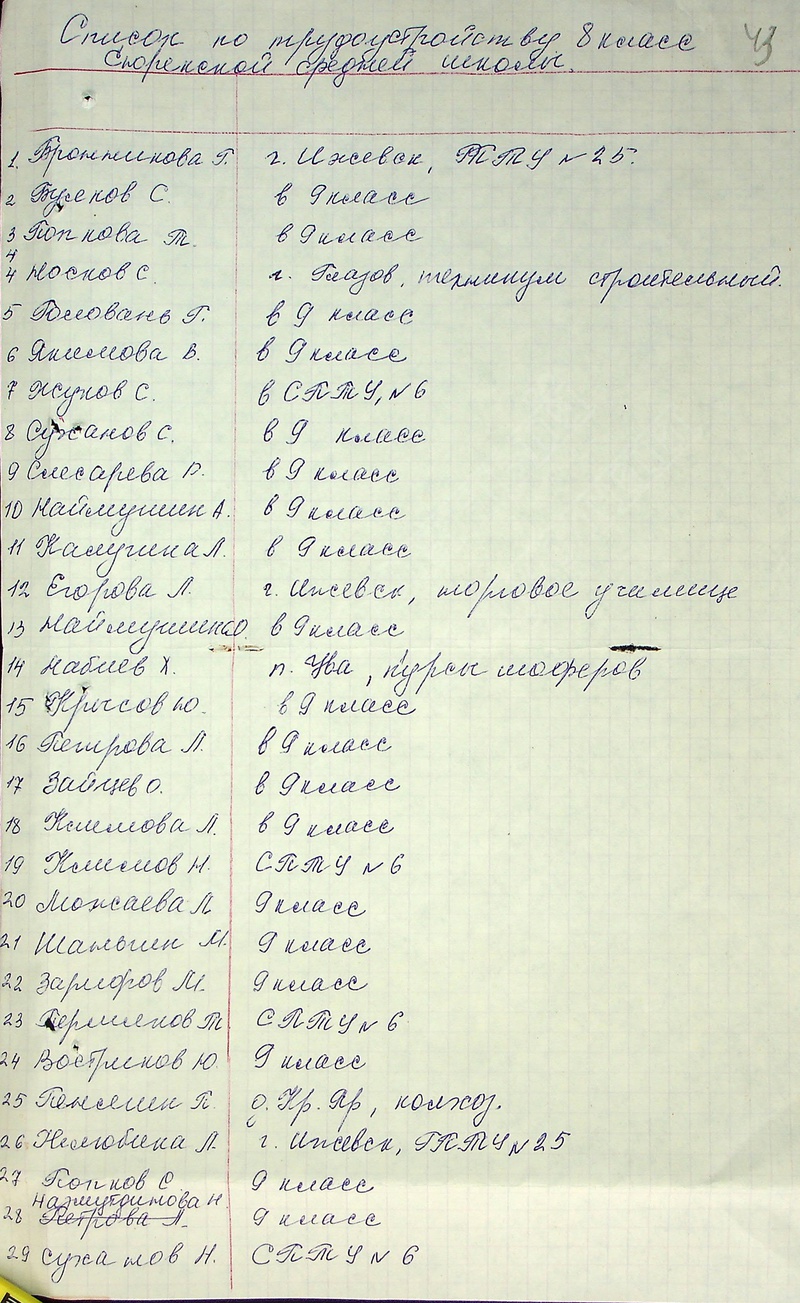 Список по трудоустройству 8 класс
Сюрекской средней школы.
43
1. Бронникова Г. г. Ижевск, ГПТУ №25.
2 Булков С. в 9 класс
3 Попкова Т. в 9 класс
4
4 Носков С. г. Глазов, техникум строительный.
5 Головань Г. в 9 класс
6 Якимова В. в 9 класс
7 Жуков С. в СПТУ, №6
8 Суханов С. в 9 класс
9 Слесарева В. в 9 класс
10 Наймушин А. в 9 класс
11 Калугина Л. в 9 класс
12 Егорова Л. г. Ижевск, торговое училище
13 Наймушина О в 9 класс
14 Набиев Х. п. Ува, курсы шоферов
15 Крысов Ю. в 9 класс
16 Петрова Л. в 9 класс
17 Зайцев О. в 9 класс
18 Климова Л. в 9 класс
19 Климов Н. СПТУ №6
20 Можаева Л 9 класс
21 Шаньгин М. 9 класс
22 Зарифов М. 9 класс
23 Пермяков Т СПТУ №6
24 Востриков Ю. 9 класс
25 Паньшин П. д. Кр. Яр, колхоз.
26 Нелюбина Л. г. Ижевск, ГПТУ №25
27 Попков С 9 класс
Нажмутдинова Н.
28 Петрова Л. 9 класс
29 Суханов Н. СПТУ №6